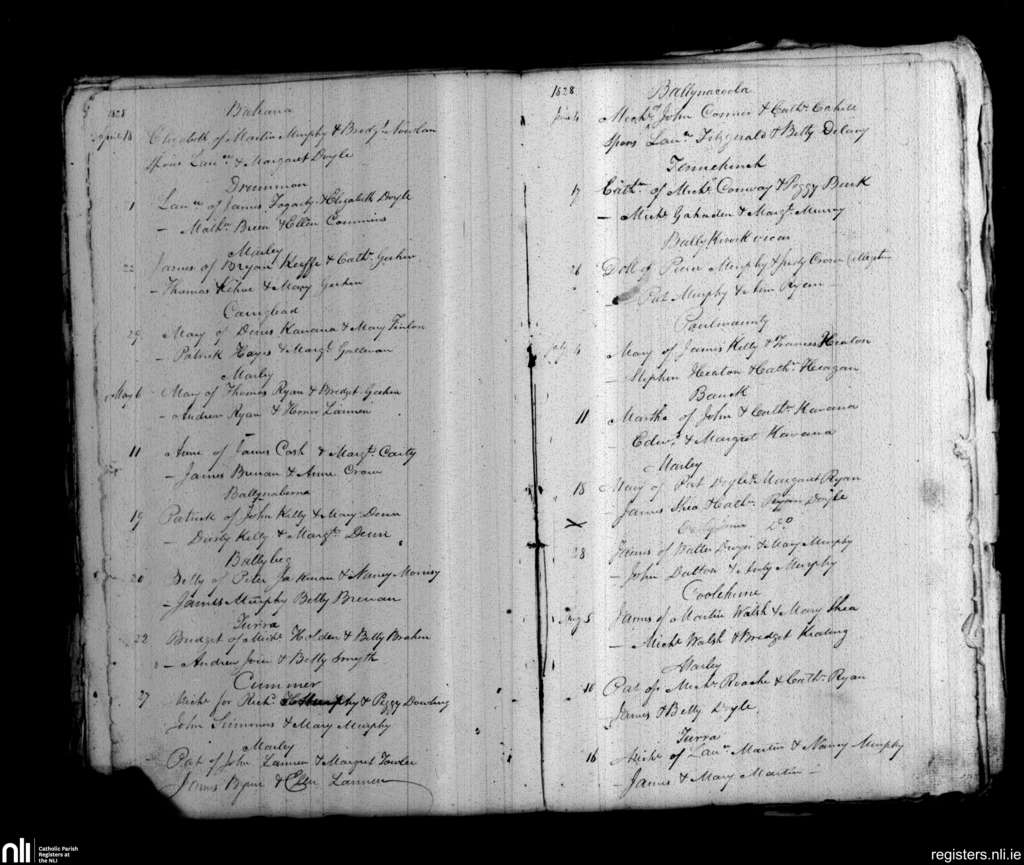 1828
Bahana
April 14 Elizabeth of Martin Murphy & Bridgt Nowlan
Spons Laurce & Margaret Doyle
Drummon
1 Laurce of James Fogarty & Elizabeth Doyle
- Mathw Breen & Ellen Commins
Marley
22 James of Bryan Keeffe & Cathn
- Thomas Kehoe & Mary
29 Mary of Denis Kavana & Mary
- Patrick Hayes & Margt
Marley
May 6 Mary of Thomas Ryan & Bridget
- Andrew Ryan & Honor Lannen
11 Anne of James Cash & Margt Carty
- James Brenan & Anne Crow
Ballynaberna
19 Patrick of John Kelly & Mary Denn
- Kelly & Margt Denn
Ballybeg
20 Betty of Peter Jackman & Nancy
- James Murphy Betty Brenan
Turra
22 Bridget of Miche Holden & Betty
- Andrew & Betty Smyth
Cummer
27 Miche for Richd & Peggy Dowling
John Simmons & Mary Murphy
Marley
Pat of John Lannen & Margret Fowler
James Byrne & Ellen Lannen
1828
Ballynacoola
June 4 Miche John Connor & Cathn Cahill
Spons Laurce Fitzgerald & Betty Delany
Tennehinch
17 Cathn of Miche Conway & Peggy Burk
- Miche & Margt Murray
26 Doll of Pierce Murphy & Judy Crow
- Pat Murphy & Ryan
July 4 Mary of James Kelly & Frances Heaton
- Stephen Heaton & Cathn Heagan
11 Martha of John & Cathn Kavana
- Edwd & Margret Kavana
Marley
18 Mary of Pat Doyle & Margaret Ryan
- James Shea & Cathn Ryan Doyle
28 James of Walter & Mary Murphy
- John Dalton & Murphy
Coolehune
Aug 5 James of Martin Walsh & Mary Shea
- Miche Walsh & Bridget Keating
Marley
10 Pat of Miche Roache & Cathn Ryan
James & Betty Doyle
Turra
16 Miche of Laurce Martin & Nancy Murphy
- James & Mary Martin -
nli
Catholic Parish
Registers at
the NLI
registers.nli.ie